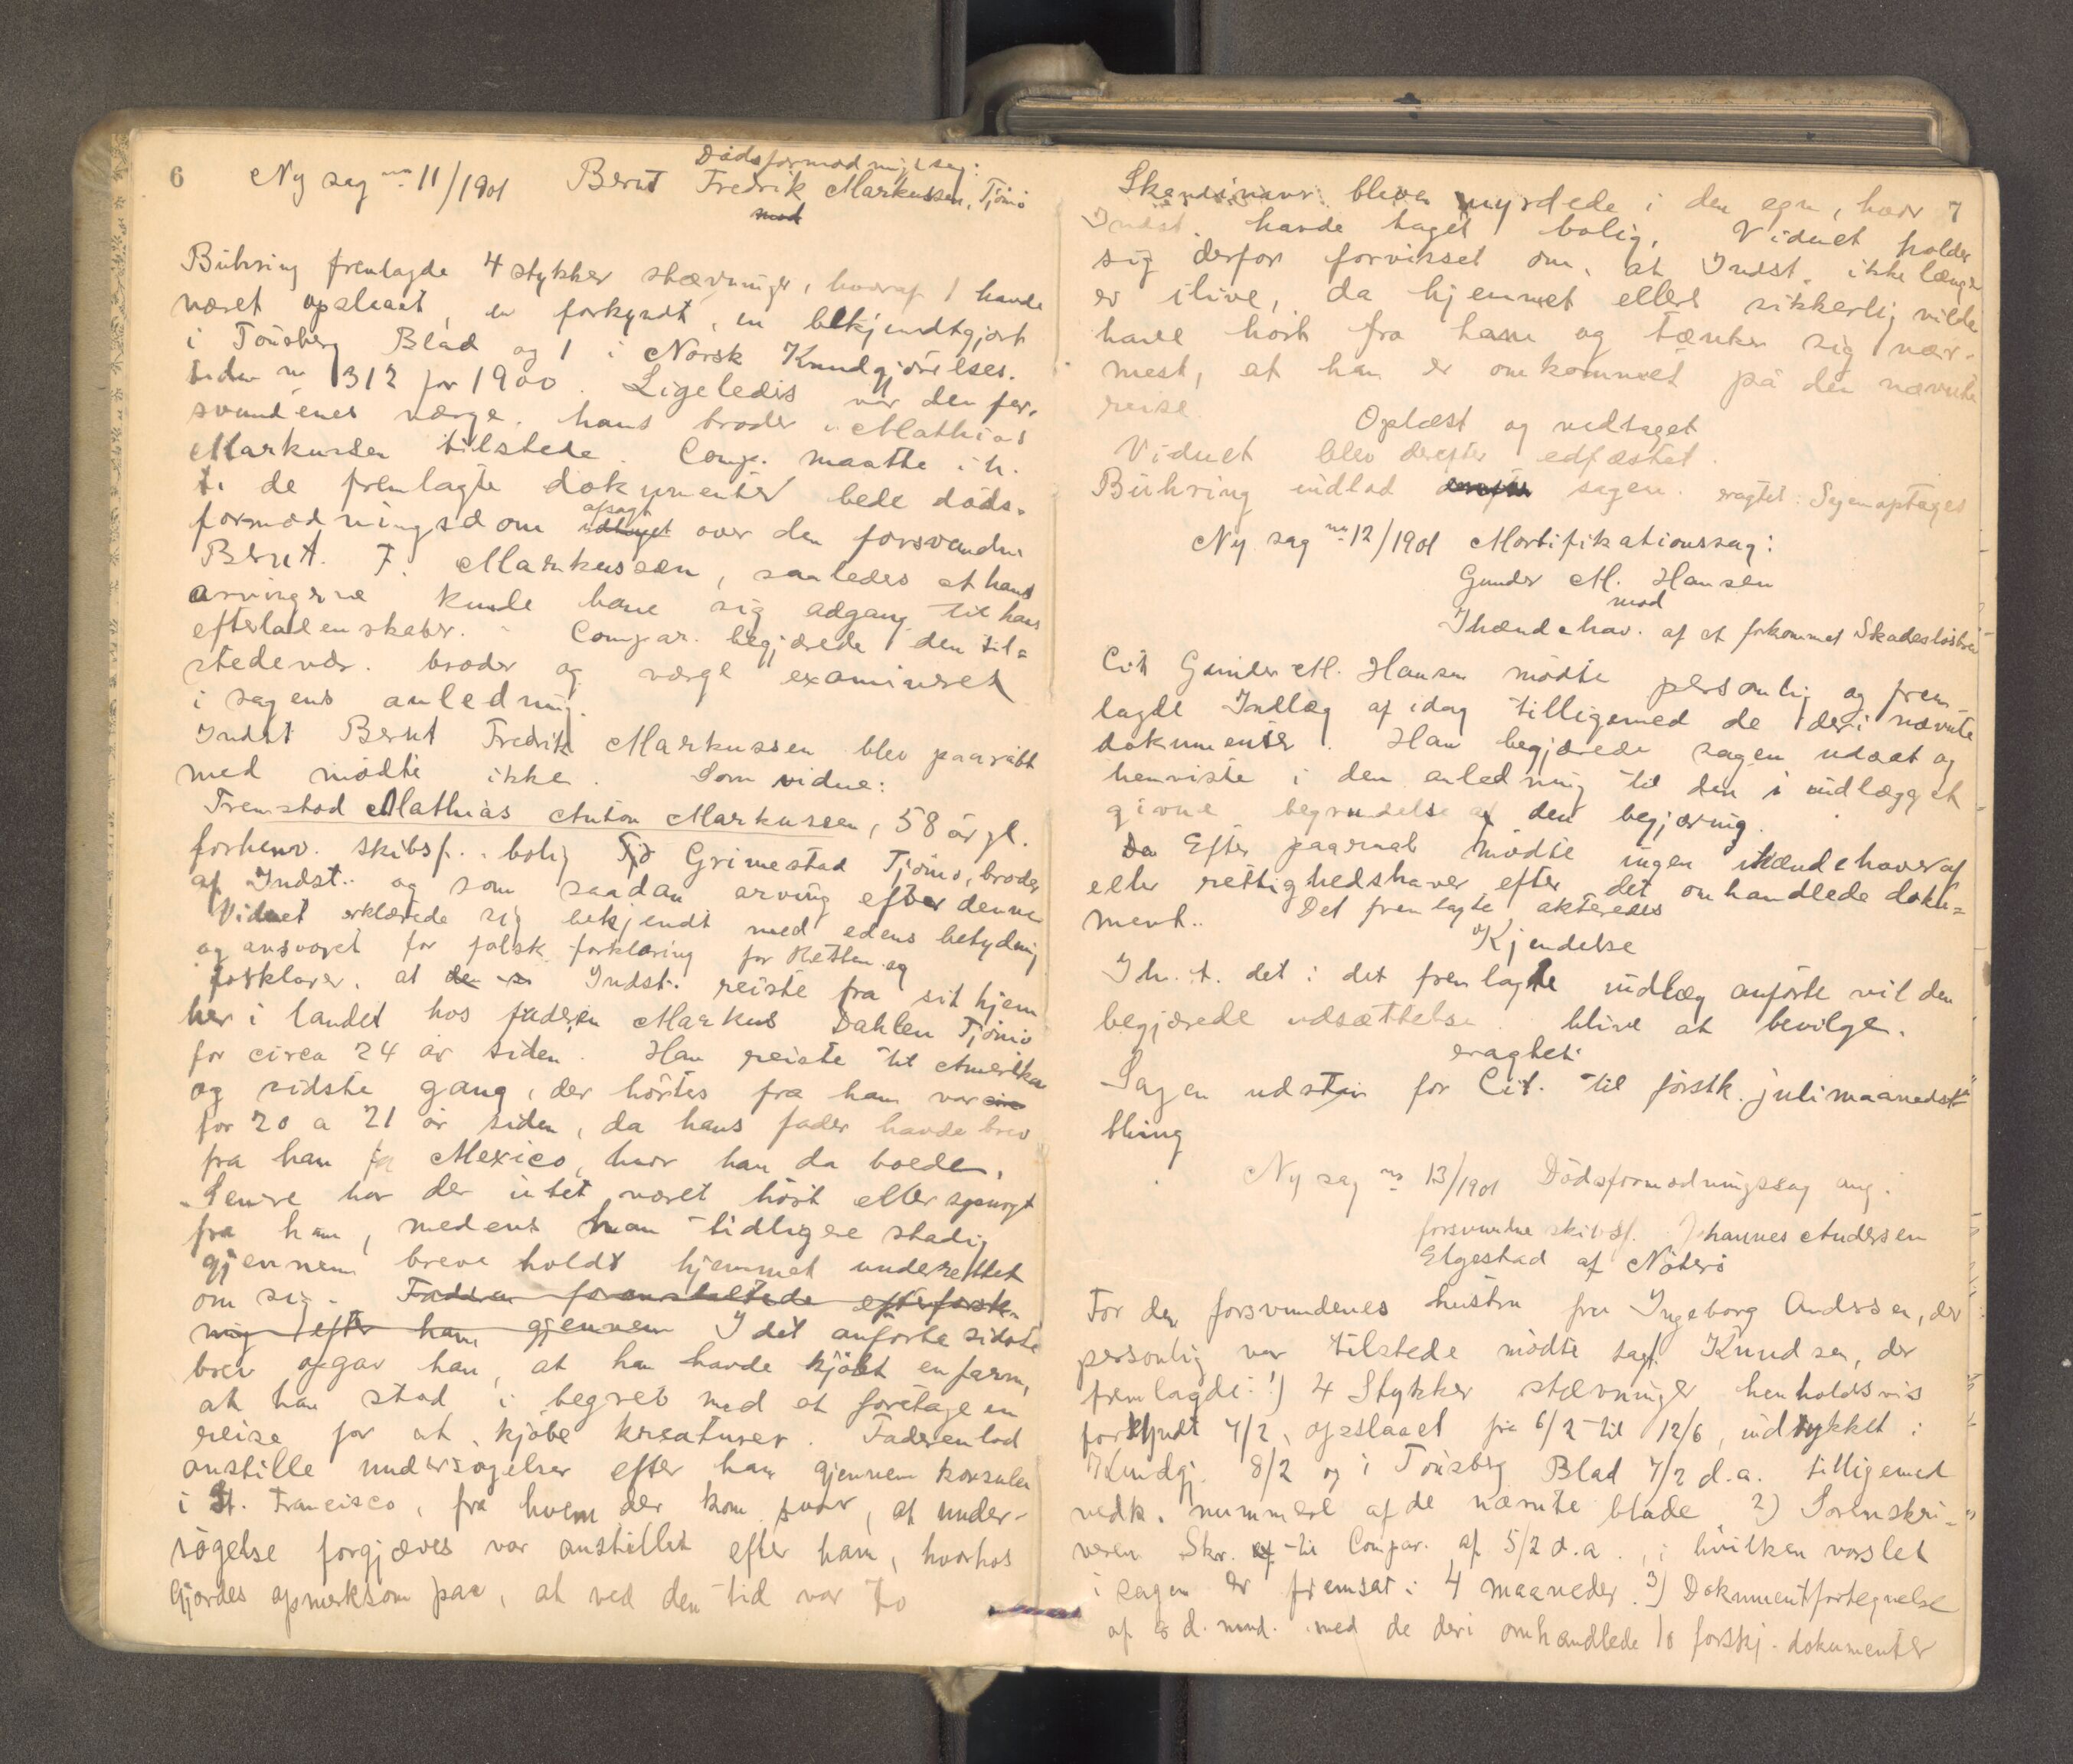 6 Ny sag no 11/1901 Dødsformodningssag:
Bernt Fredrik Markussen, Tjömö
mod
Bühring fremlagde 4 stykker stævninger, hvoraf 1 havde
været opslaaet, en forkyndt, en bekjendtgjort
i Tönsberg Blad og 1 i Norsk Kundgjörelses-
tiden no 312 for 1900. Ligeledes var den for-
svundenes værge, hans broder Mathias
Markussen tilstede. Comp. maatte i h.
t. de fremlagte dokumenter bede döds-
formodningsdom afsagt over den forsvundne
Bernt. F. Markussen, saaledes at hans
arvingerne kunde have sig adgang til hans
efterladenskaber. - Compar. begjærede den til-
stedevær. broder og værge examineret
i sagens anledning.
Indst Bernt Fredrik Markussen blev paaraabt
med mödte ikke. Som vidne:
Fremstod Mathias Anton Markussen, 58 år gl.
forhenv. skibsf. bolig Grimestad Tjömö, broder
af Indst. og som saadan arving efter denne
Vidnet erklærede sig bekjendt med edens betydning
og ansvaret for falsk forklaring for Retten og
forklarer, at de Indst. reiste fra sit hjem
her i landet hos faderen Markus Dahlen Tjömö
for circa 24 år siden. Han reiste til Amerika
og sidste gang, der hörtes fra ham var
for 20 a 21 år siden, da hans fader havde brev
fra ham fra Mexico, hvor han da boede.
Senere har der intet været hört eller spurgt
fra ham, medens han tidligere stadig
gjennem breve holdt hjemmet underrettet
om sig. Faderen foranstaltede efterforsk-
ning efter ham gjennem I det anförte sidste
brev opgav han, at han havde kjöbt en farm,
at han stod i begreb med at foretage en
reise for at kjöbe kreaturer. Faderen lod
anstille undersögelser efter ham gjennem konsulen
i St. Francisco, fra hvem der kom svar, at under-
sögelse forgjæves var anstillet efter ham, hvorhos
gjordes opmerksom paa, at ved den tid var 70
Skandinaver bleven myrdede i den egn, hvor 7
Indst. havde taget bolig. Vidnet holder
sig derfor forvisset om, at Indst. ikke længer
er ilive, da hjemmet ellers sikkerlig vilde
have hört fra ham og tænker sig nær-
mest, at han er omkommet på den nævnte
reise
Oplæst og vedtaget
Vidnet blev derefter edfæstet.
Bühring indlod sagen. eragtet: Sagen optages
Ny sag no 12/1901 Mortifikationssag:
Gunder M. Hansen
mod
Ihændehav. af et forkommet Skadeslösbrev
Cit Gunder M. Hansen mödte personlig og frem-
lagde Indlæg af idag tilligemed de deri nævnte
dokumenter. Han begjærede sagen udsat og
henviste i den anledning til den i indlægget
givne begrundelse af den begjæring.
Da Efter paaraab mödte ingen ihændehaver af
eller rettighedshaver efter det omhandlede doku-
ment.. Det fremlagte akteredes
Kjendelse
I h. t. det i det fremlagte indlæg anförte vil den
begjærede udsættelse blive at bevilge.
eragtet:
Sagen udstår for Cit. til förstk. juli maanedst
thing
Ny sag no 13/1901 Dödsformodningssag ang.
forsvundne skibsf. Johannes Andersen
Elgestad af Nöterö
For den forsvundenes hustru fru Ingeborg Andersen, der
personlig var tilstede mödte sagf. Knudsen, der
fremlagde: 1) 4 Stykker stævninger henholdsvis
forkyndt 7/2, opslaaet fra 6/2 til 12/6, indrykket i
Kundgj. 8/2 og i Tönsberg Blad 7/2 d.a. tilligemed
vedk. nummere af de nævnte blade 2) Sorenskri-
veren Skr. til Compar. af 5/2 d.a., i hvilken varslet
i sagen er fremsat i 4 maaneder. 3) Dokumentfortegnelse
af d. mnd. med de deri omhandlede 10 forskj. dokumenter